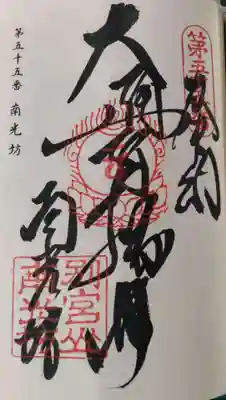 奉納
大通智勝佛
南光坊
別宮山
南光坊
第五十五番 南光坊